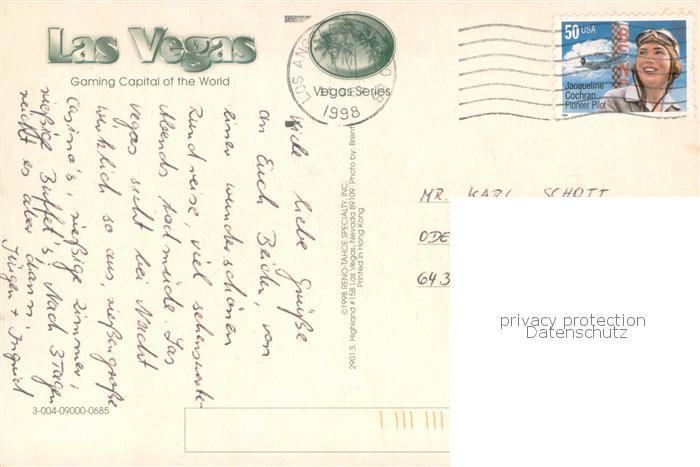 Las Vegas
Gaming Capital of the World
Vegas Series
LOS AN
1998
50 USA
Jacqueline
Cochran
Pioneer Pilot
Viele liebe Grüße
an Euch Beide, von
einer wunderschönen
Rundreise, viel sehenswerte
Abends todmüde. Las
Vegas sieht bei Nacht
wirklich so aus, rießengroße
Casino's, rießige Zimmer,
rießige Buffet's. Nach 3 Tagen
reicht es aber dann.
Jürgen + Ingrid
©1998 RENO-TAHOE SPECIALTY, INC. Photo by: Brent
2901 S. Highland #15B Las Vegas, Nevada 89109
Printed in Hong Kong
MR. KARL SCHOTT
ODE
643
privacy protection
Datenschutz
3-004-09000-0685